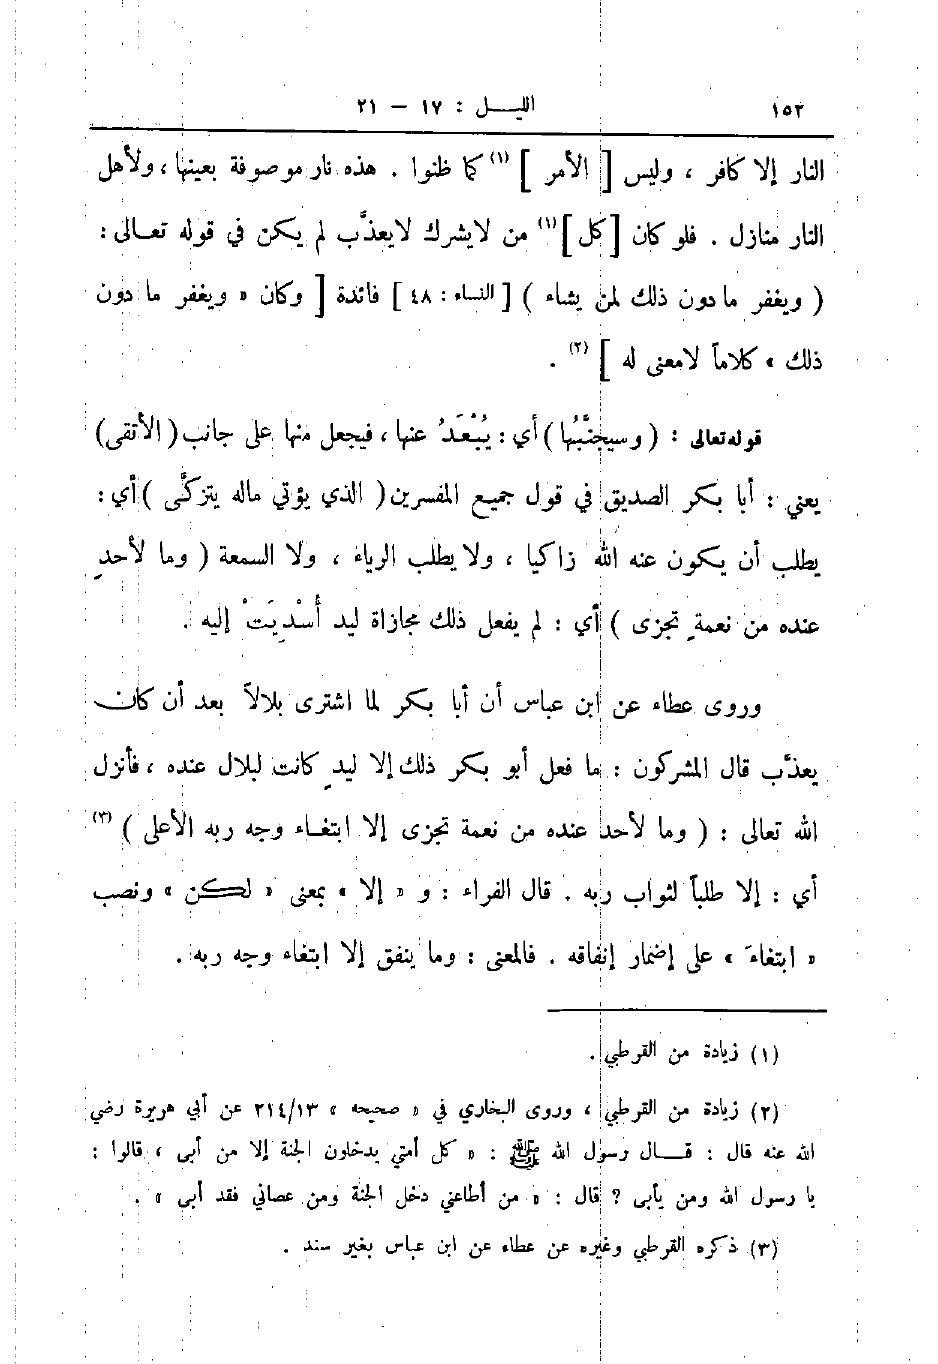 ١٥٢ الليـــل : ١٧ – ٢١
النار إلا كافر ، وليس [ الأمر ] (١) كما ظنوا . هذه نار موصوفة بعينها ، ولأهل
النار منازل . فلو كان [ كل ] (١) من لا يشرك لا يعذَّب لم يكن في قوله تعـالى :
( ويغفر ما دون ذلك لمن يشاء ) [ النساء : ٤٨ ] فائدة [ وكان « ويغفر ما دون
ذلك » كلاماً لا معنى له ] (٢) .
قوله تعالى : ( وسيجنَّبُها ) أي : يُبْعَدُ عنها ، فيجعل منها على جانب ( الأتقى )
يعني : أبا بكر الصديق في قول جميع المفسرين ( الذي يؤتي ماله يتزكَّى ) أي :
يطلب أن يكون عنه الله زاكيا ، ولا يطلب الرياء ، ولا السمعة ( وما لأحدٍ
عنده من نعمةٍ تجزى ) أي : لم يفعل ذلك مجازاة ليد أُسْدِيَتْ إليه .
وروى عطاء عن ابن عباس أن أبا بكر لما اشترى بلالاً بعد أن كان
يعذَّب قال المشركون : ما فعل أبو بكر ذلك إلا ليدٍ كانت لبلال عنده ، فأنزل
الله تعالى : ( وما لأحد عنده من نعمة تجزى إلا ابتغـاء وجه ربه الأعلى ) (٣)
أي : إلا طلباً لثواب ربه . قال الفراء : و « إلا » بمعنى « لكن » ونصب
« ابتغاءَ » على إضمار إنفاقه . فالمعنى : وما ينفق إلا ابتغاء وجه ربه .
(١) زيادة من القرطبي .
(٢) زيادة من القرطبي ، وروى البخاري في « صحيحه » ٢١٤/١٣ عن أبي هريرة رضي
الله عنه قال : قـــال رسول الله ﷺ : « كل أمتي يدخلون الجنة إلا من أبى ، قالوا :
يا رسول الله ومن يأبى ؟ قال : « من أطاعني دخل الجنة ومن عصاني فقد أبى » .
(٣) ذكره القرطبي وغيره عن عطاء عن ابن عباس بغير سند .